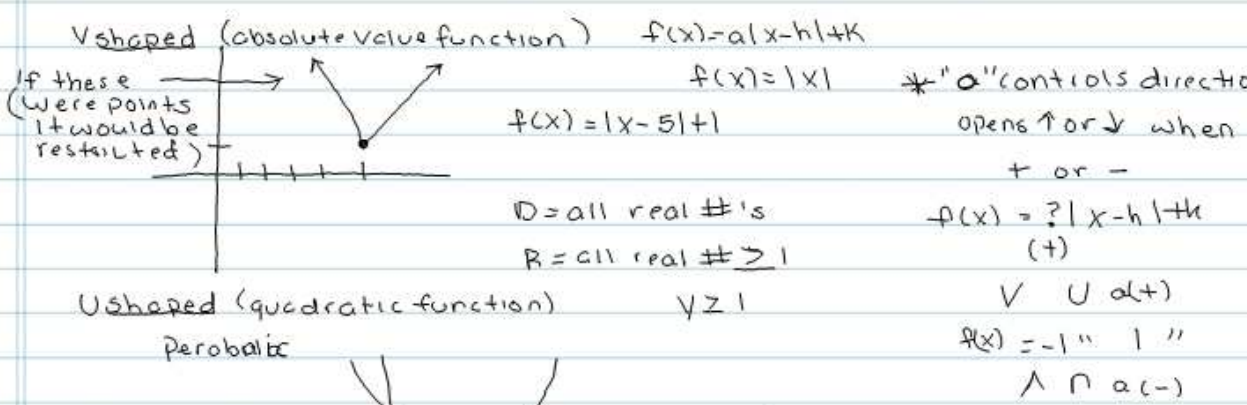 V shaped (absolute value function) f(x)=a|x-h|+K
f(x)=|x|
f(x)=|x-5|+1
If these
(were points
it would be
restircted)
D=all real #'s
R=all real # ≥ 1
y≥1
*"a" controls directio
opens ↑ or ↓ when
+ or -
f(x) = ?|x-h|+k
(+)
V U a(+)
f(x) = -1 " | "
Λ ∩ a(-)
U shaped (quadratic function)
Perobalic